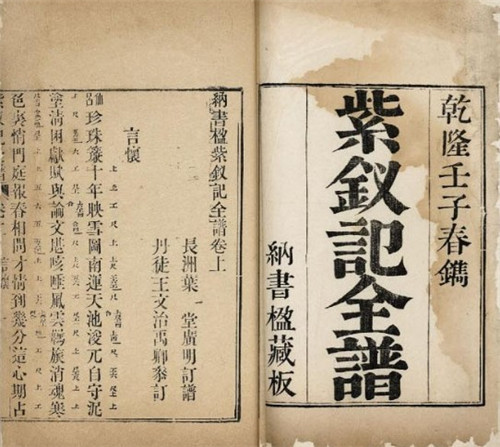 乾隆壬子春鐫
紫釵記全譜
納書楹藏板
納書楹紫釵記全譜卷上
長洲葉 堂廣明訂譜
丹徒王文治禹卿參訂
言懷
珍珠簾十年映雪圖南運天池浚元自守泥
塗清困獻賦與論文堪咳唾風雲羈旅消魂寒
色裏悄門庭報春相問才情到幾分這心期占